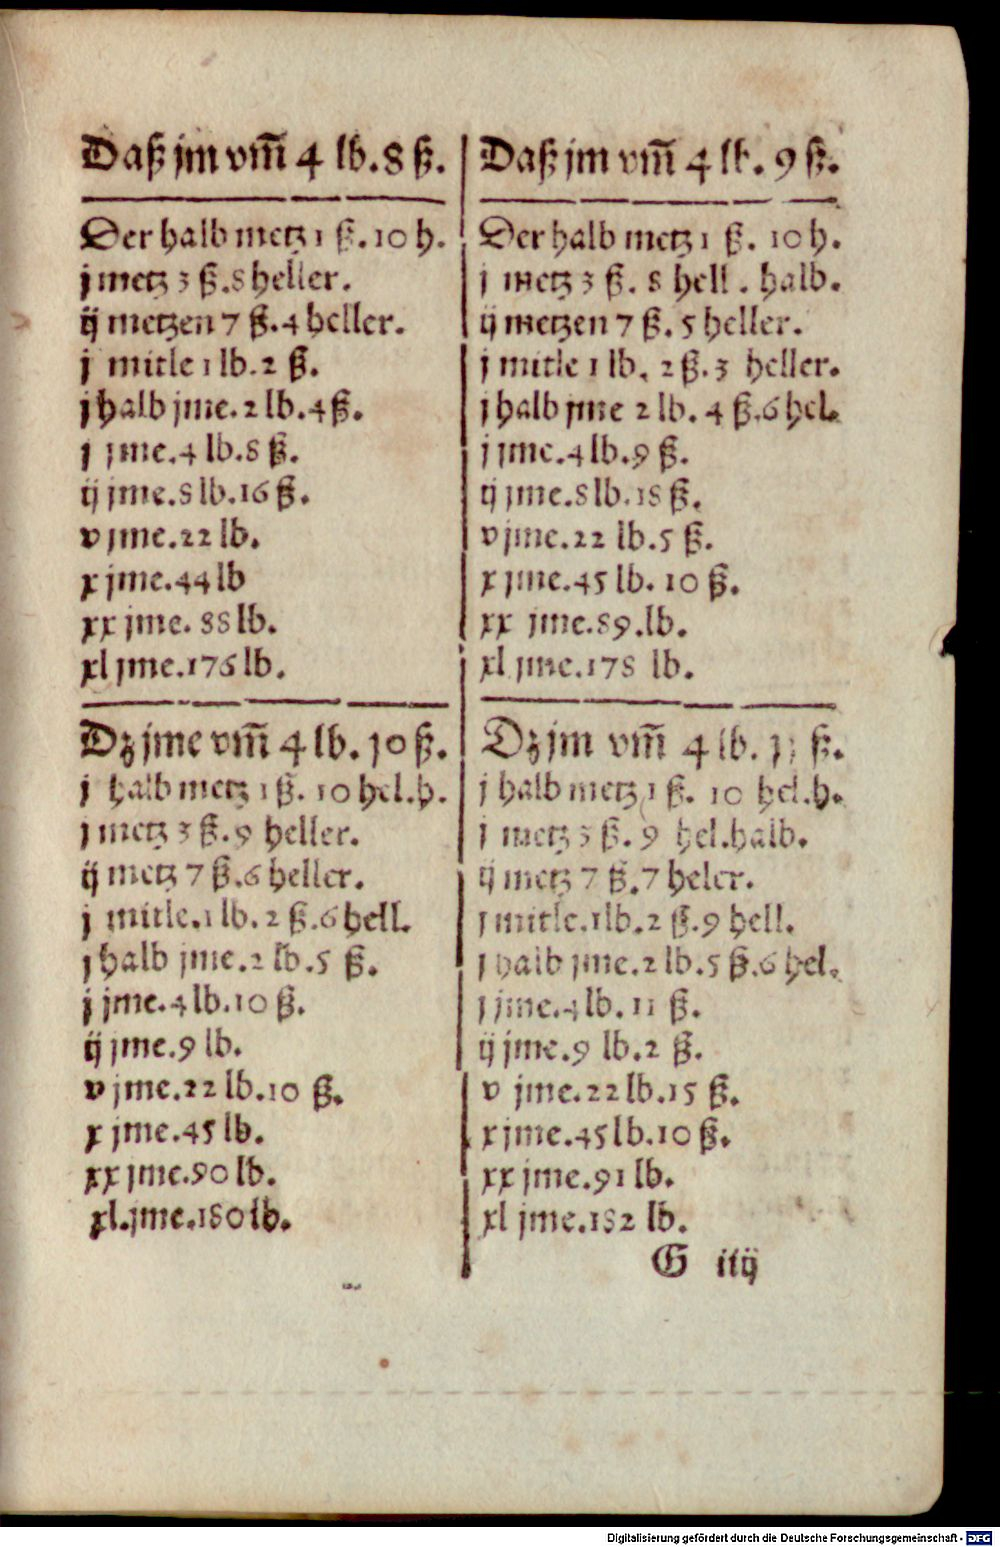 Daß jm vm̃ 4 lb. 8 ß.
Der halb metz 1 ß. 10 h.
j metz 3 ß. 8 heller.
ij metzen 7 ß. 4 heller.
j mitle 1 lb. 2 ß.
j halb jme. 2 lb. 4 ß.
j jme. 4 lb. 8 ß.
ij jme. 8 lb. 16 ß.
v jme. 22 lb.
x jme. 44 lb
xx jme. 88 lb.
xl jme. 176 lb.
Dz jme vm̃ 4 lb. 10 ß.
j halb metz 1 ß. 10 hel. h.
j metz 3 ß. 9 heller.
ij metz 7 ß. 6 heller.
j mitle. 1 lb. 2 ß. 6 hell.
j halb jme. 2 lb. 5 ß.
j jme. 4 lb. 10 ß.
ij jme. 9 lb.
v jme. 22 lb. 10 ß.
x jme. 45 lb.
xx jme. 90 lb.
xl. jme. 180 lb.
Daß jm vm̃ 4 lb. 9 ß.
Der halb metz 1 ß. 10 h.
j metz 3 ß. 8 hell. halb.
ij metzen 7 ß. 5 heller.
j mitle 1 lb. 2 ß. 3 heller.
j halb jme 2 lb. 4 ß. 6 hel.
j jme. 4 lb. 9 ß.
ij jme. 8 lb. 18 ß.
v jme. 22 lb. 5 ß.
x jme. 45 lb. 10 ß.
xx jme. 89. lb.
xl jme. 178 lb.
Dz jm vm̃ 4 lb. 11 ß.
j halb metz 1 ß. 10 hel. h.
j metz 3 ß. 9 hel. halb.
ij metz 7 ß. 7 heler.
j mitle. 1 lb. 2 ß. 9 hell.
j halb jme. 2 lb. 5 ß. 6 hel.
j jme. 4 lb. 11 ß.
ij jme. 9 lb. 2 ß.
v jme. 22 lb. 15 ß.
x jme. 45 lb. 10 ß.
xx jme. 91 lb.
xl jme. 182 lb.
G iiij
Digitalisierung gefördert durch die Deutsche Forschungsgemeinschaft - DFG